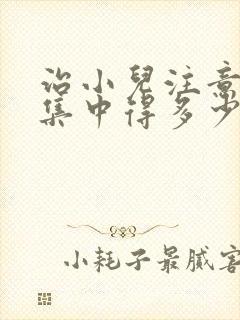 治小兒注意
集中得多少
小耗子最膩害